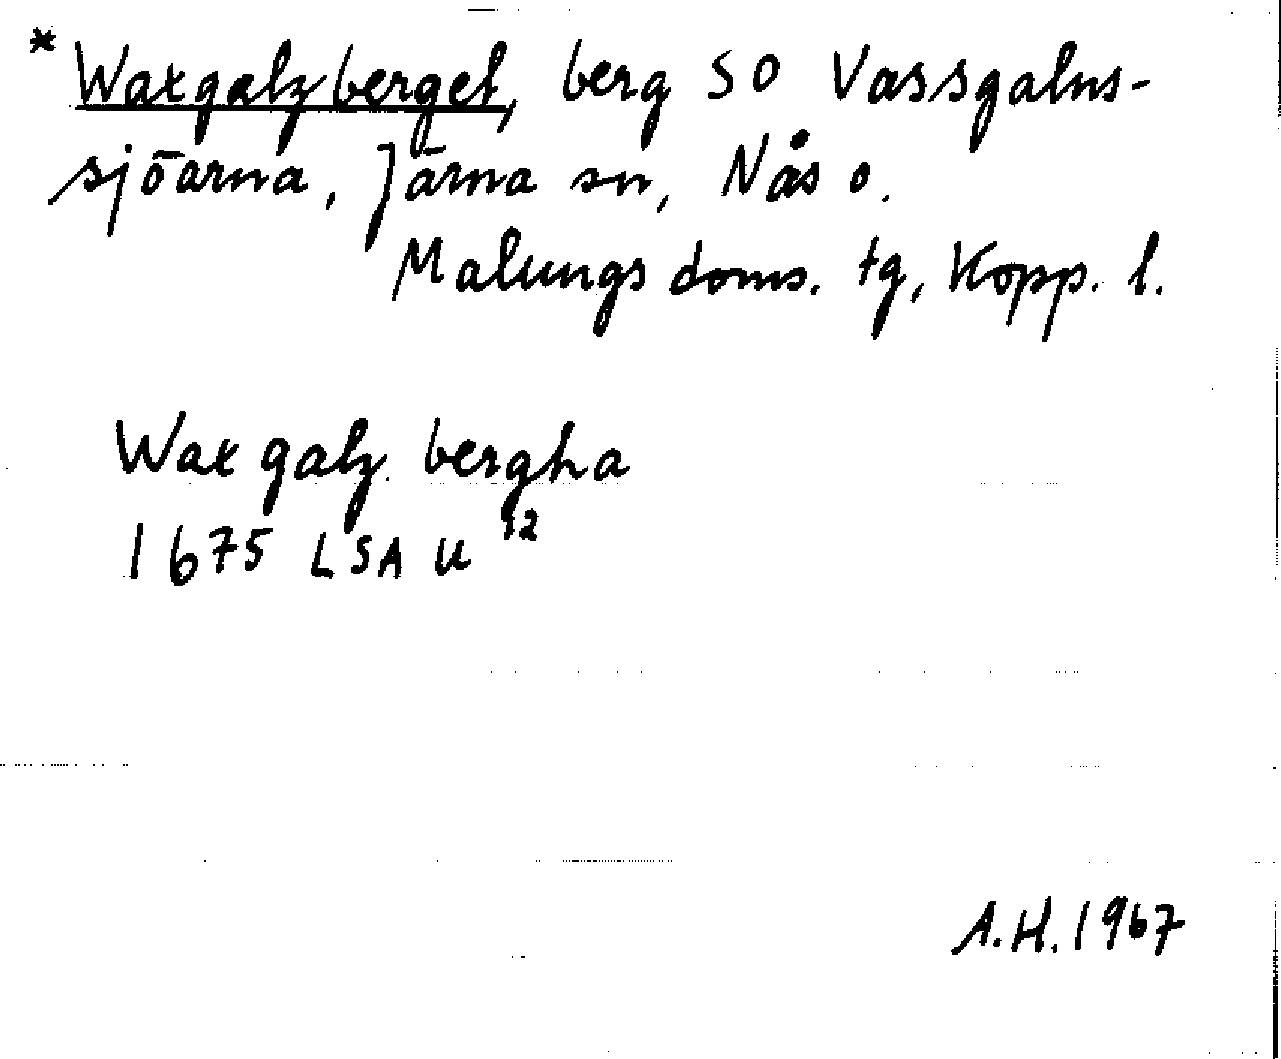 * Waxgalzberget, berg SO Vassgalns-
sjöarna, Järna sn, Nås o.
Malungs doms. tg, Kopp. l.
Wax galz bergha
1675 LSA U 12
A.H. 1967